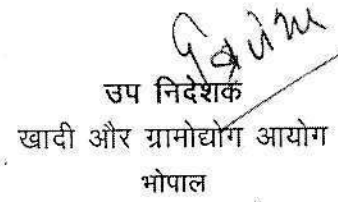 उप निदेशक
खादी और ग्रामोद्योग आयोग
भोपाल